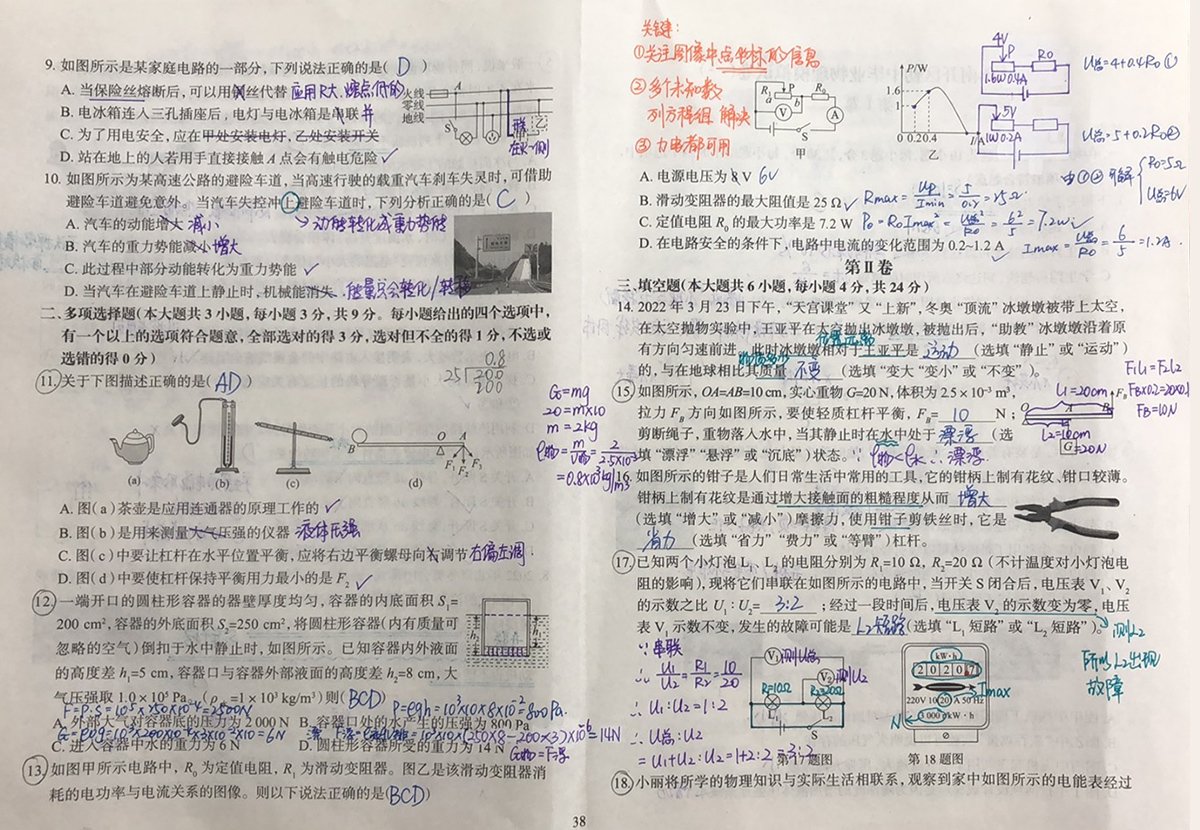 9. 如图所示是某家庭电路的一部分,下列说法正确的是( D )
A. 当保险丝熔断后,可以用铜丝代替 应用R大,熔点低的
B. 电冰箱连入三孔插座后,电灯与电冰箱是串联 并
C. 为了用电安全,应在甲处安装电灯,乙处安装开关
D. 站在地上的人若用手直接接触 A 点会有触电危险✓
火线
零线
地线
A
S
甲
乙
在火一侧
10. 如图所示为某高速公路的避险车道,当高速行驶的载重汽车刹车失灵时,可借助
避险车道避免意外。当汽车失控冲上避险车道时,下列分析正确的是( C )
A. 汽车的动能增大 减小
动能转化成重力势能
B. 汽车的重力势能减小 增大
C. 此过程中部分动能转化为重力势能 ✓
D. 当汽车在避险车道上静止时,机械能消失. 能量只会转化/转移
二、多项选择题(本大题共 3 小题,每小题 3 分,共 9 分。每小题给出的四个选项中,
有一个以上的选项符合题意,全部选对的得 3 分,选对但不全的得 1 分,不选或
选错的得 0 分)
0.8
25 200
200
11. 关于下图描述正确的是( AD )
B O A
F₁ F₂ F₃
(a) (b) (c) (d)
G=mg
20=m×10
m=2kg
ρ物=m/V物=2/2.5×10⁻³
=0.8×10³kg/m³
A. 图(a)茶壶是应用连通器的原理工作的 ✓
B. 图(b)是用来测量大气压强的仪器 液体压强
C. 图(c)中要让杠杆在水平位置平衡,应将右边平衡螺母向右调节 右偏左调
D. 图(d)中要使杠杆保持平衡用力最小的是 F₂ ✓
12. 一端开口的圆柱形容器的器壁厚度均匀,容器的内底面积 S₁=
200 cm²,容器的外底面积 S₂=250 cm²,将圆柱形容器(内有质量可
忽略的空气)倒扣于水中静止时,如图所示。已知容器内外液面
的高度差 h₁=5 cm,容器口与容器外部液面的高度差 h₂=8 cm,大
气压强取 1.0×10⁵ Pa。(ρ水=1×10³ kg/m³)则( BCD )
h₂
h₁
F=P·S=10⁵×250×10⁻⁴=2500N
P=ρgh=10³×10×8×10⁻²=800Pa.
A. 外部大气对容器底的压力为 2 000 N B. 容器口处的水产生的压强为 800 Pa
C. 进入容器中水的重力为 6 N D. 圆柱形容器所受的重力为 14 N
G物=F浮
13. 如图甲所示电路中, R₀ 为定值电阻, R₁ 为滑动变阻器。图乙是该滑动变阻器消
耗的电功率与电流关系的图像。则以下说法正确的是( BCD )
38
关键:
①关注图像中点坐标的信息
②多个未知数
列方程组 解决
③力电都可用
R₁ P R₀
a b
V A
S
甲
P/W
1.6
1
0 0.20.4 I/A
乙
4V
P R₀
1.6W 0.4A
5V
1W 0.2A
U总=4+0.4R₀ ①
U总=5+0.2R₀②
由①② 可解
R₀=5Ω
U总=6V
A. 电源电压为 8 V 6V
B. 滑动变阻器的最大阻值是 25 Ω ✓ Rmax=Up/Imin=5/0.2=25Ω
C. 定值电阻 R₀ 的最大功率是 7.2 W P₀=R₀Imax²=U总²/R₀=6²/5=7.2W ✓
D. 在电路安全的条件下,电路中电流的变化范围为 0.2~1.2 A ✓ Imax=U总/R₀=6/5=1.2A.
第 II 卷
三、填空题(本大题共 6 小题,每小题 4 分,共 24 分)
14. 2022 年 3 月 23 日下午,“天宫课堂”又“上新”,冬奥“顶流”冰墩墩被带上太空,
在太空抛物实验中,王亚平在太空抛出冰墩墩,被抛出后,“助教”冰墩墩沿着原
位置改变
有方向匀速前进。此时冰墩墩相对于王亚平是 运动 (选填“静止”或“运动”)
的,与在地球相比其质量 不变 (选填“变大”“变小”或“不变”)。
15. 如图所示, OA=AB=10 cm,实心重物 G=20 N,体积为 2.5×10⁻³ m³,
拉力 F_B 方向如图所示,要使轻质杠杆平衡, F_B= 10 N;
剪断绳子,重物落入水中,当其静止时在水中处于 漂浮 (选
填“漂浮”“悬浮”或“沉底”)状态。∵ρ物<ρ水 ∴漂浮
L₁=20cm F_B
O A B
L₂=10cm
G=20N
F₁L₁=F₂L₂
F_B×0.2=20×0.1
F_B=10N
16. 如图所示的钳子是人们日常生活中常用的工具,它的钳柄上制有花纹、钳口较薄。
钳柄上制有花纹是通过增大接触面的粗糙程度从而 增大
(选填“增大”或“减小”)摩擦力,使用钳子剪铁丝时,它是
省力 (选填“省力”“费力”或“等臂”)杠杆。
17. 已知两个小灯泡 L₁、L₂ 的电阻分别为 R₁=10 Ω, R₂=20 Ω (不计温度对小灯泡电
阻的影响),现将它们串联在如图所示的电路中,当开关 S 闭合后,电压表 V₁、V₂
的示数之比 U₁∶U₂= 3:2 ;经过一段时间后,电压表 V₂ 的示数变为零,电压
表 V₁ 示数不变,发生的故障可能是 L₂短路 (选填“L₁ 短路”或“L₂ 短路”)。
测L₂
所以L₂出现
故障
∵串联
∴ U₁/U₂=R₁/R₂=10/20
∴ U₁:U₂=1:2
∴ U总:U₂
=U₁+U₂:U₂=1+2:2=3:2
V₁ 测U总
V₂ 测U₂
R₁=10Ω R₂=20Ω
L₁ L₂
S
第 17 题图
kW·h
2 0 2 0 7
220V 10(20)A 50 Hz
Imax
3 000 r/kW·h
N
第 18 题图
18. 小丽将所学的物理知识与实际生活相联系,观察到家中如图所示的电能表经过